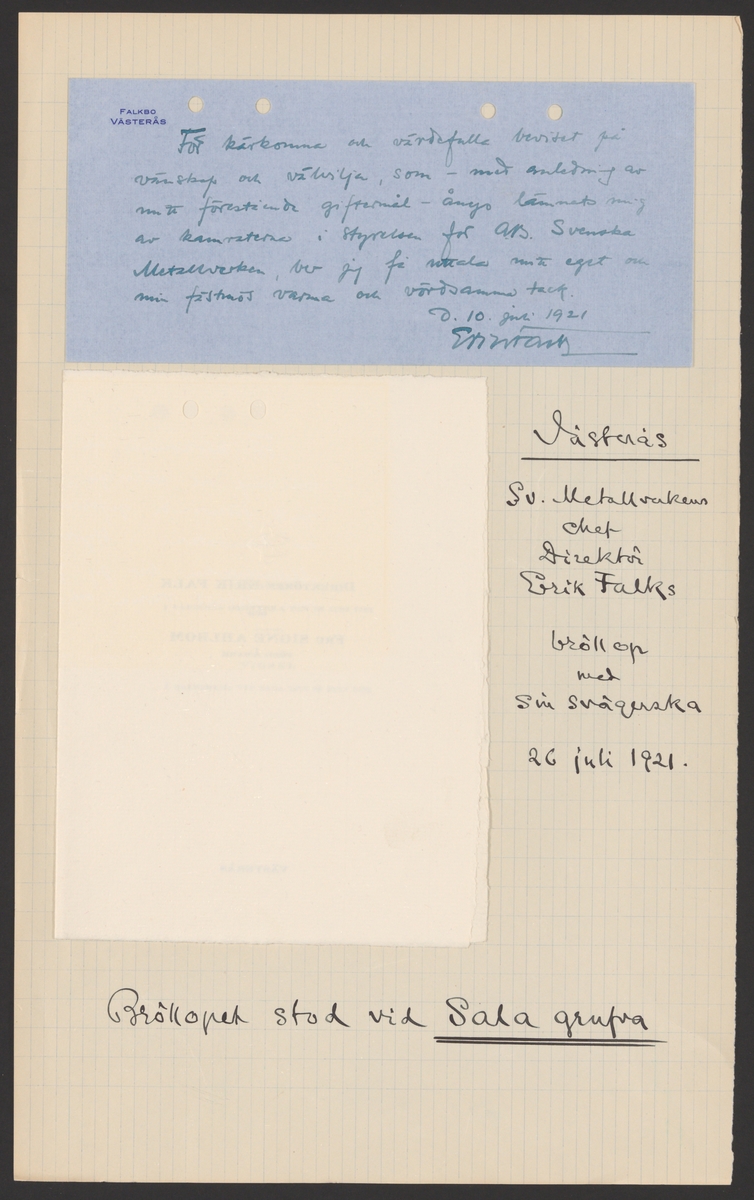 FALKBO
VÄSTERÅS
För kärkomna och värdefulla beviset på
vänskap och välvilja, som – med anledning av
mitt förestående giftermål – ånyo lämnats mig
av kamraterna i styrelsen för A/B. Svenska
Metallverken, ber jag få uttala mitt eget och
min fästmös varma och vördsamma tack.
D. 10. juli 1921
Erik Falk
Västerås
Sv. Metallverkens
chef
Direktör
Erik Falks
bröllop
med
sin svägerska
26 juli 1921.
Bröllopet stod vid Sala grufva